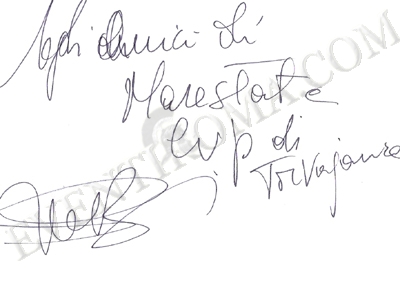 Agli Amici di
Marestate
Cup di
Torvajanica
EVENTIROMA.COM